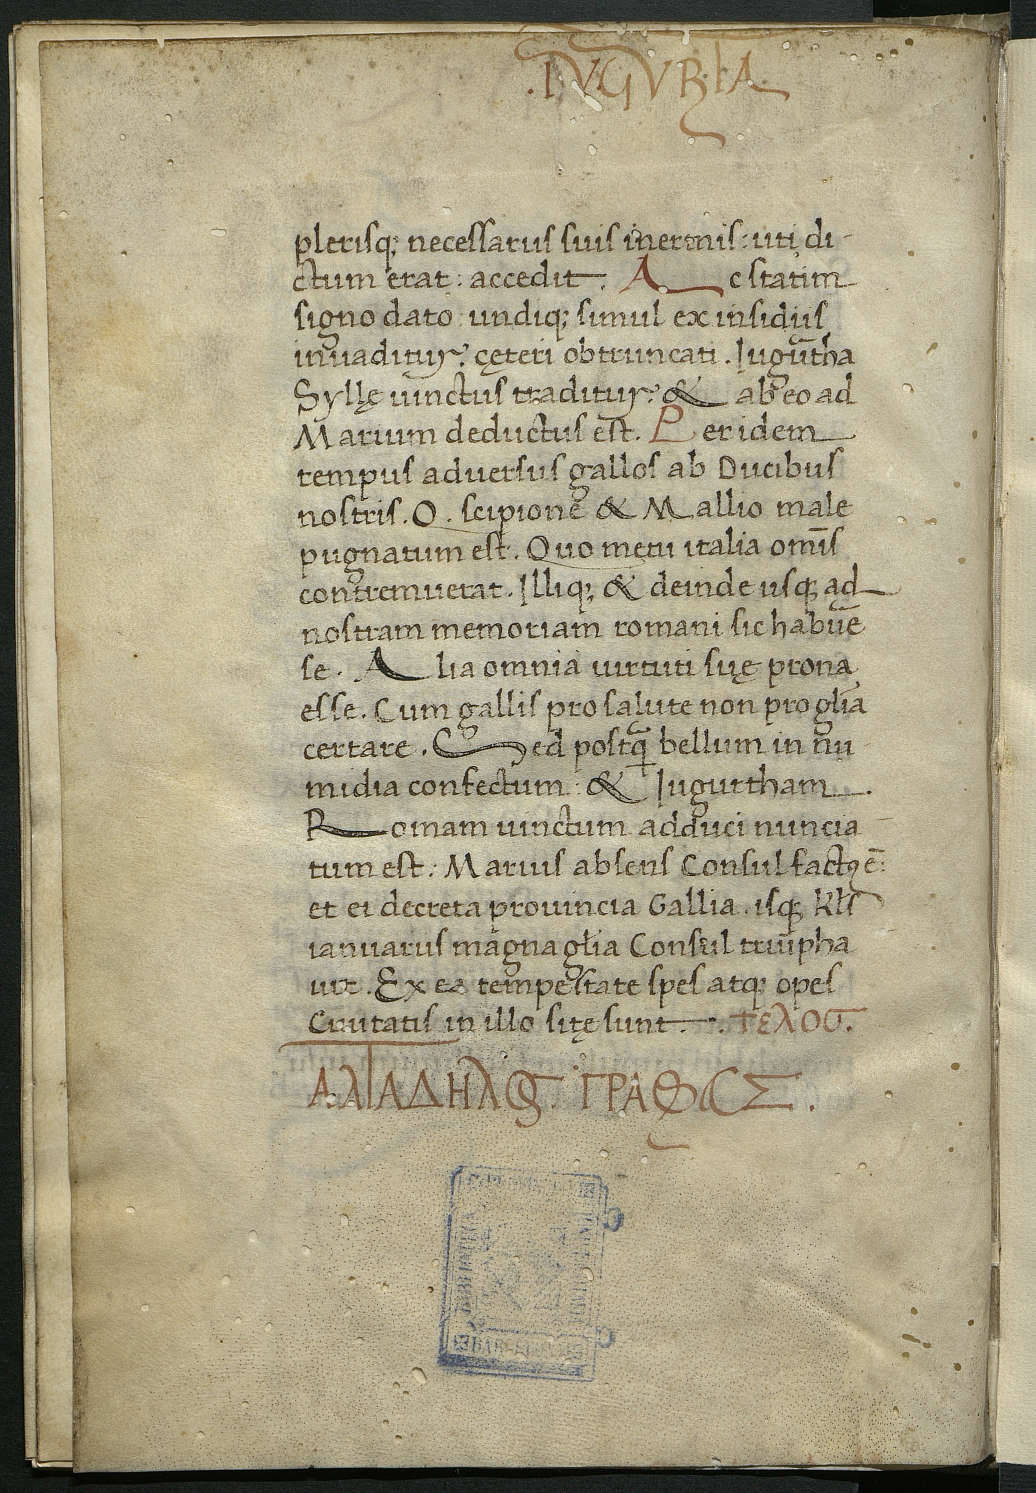 .IVGVRTA.
plerisq; necessarus suis inermis: uti di-
ctum erat: accedit. Ac statim
signo dato undiq; simul ex insidiis
inuaditur: cęteri obtruncati. Iugurtha
Syllę uinctus traditur: & ab eo ad
Marium deductus est. Per idem
tempus aduersus gallos ab Ducibus
nostris. Q. scipione & Mallio male
pugnatum est. Quo metu italia om̄is
contremuerat. Illiq; & deinde usq; ad
nostram memoriam romani sic habue
se. Alia omnia uirtuti suę prona
esse. Cum gallis pro salute non pro gl̄ia
certare. Sed postq̄ bellum in nu-
midia confectum: & Iugurtham
Romam uinctum adduci nuncia-
tum est: Marius absens Consul factꝯ ē:
et ei decreta prouincia Gallia. isq; kl̄
ianuariis magna gl̄ia Consul triūpha
uit. Ex ea tempestate spes atq; opes
Ciuitatis in illo sitę sunt. τελοσ.